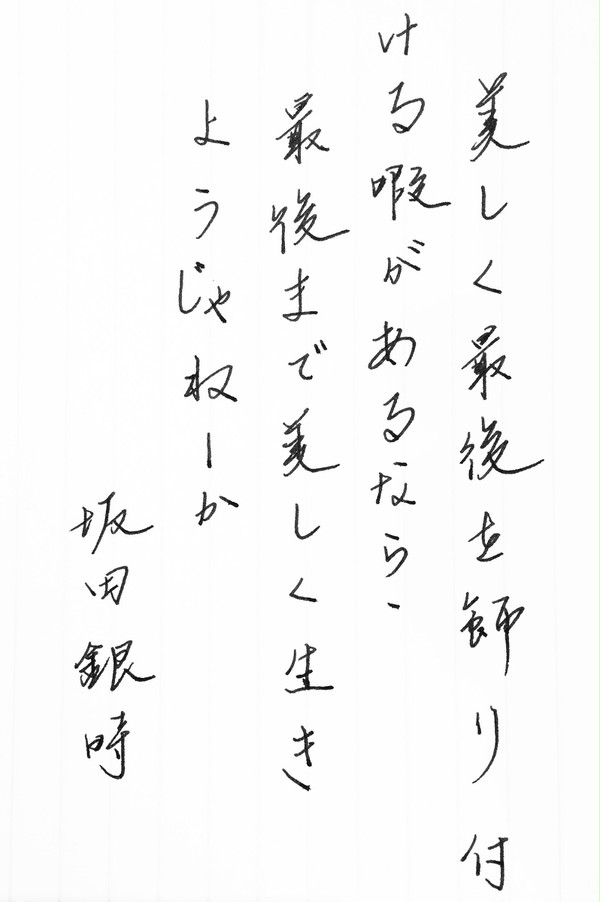 美しく最後を飾り付
ける暇があるなら、
最後まで美しく生き
ようじゃねーか
坂田銀時